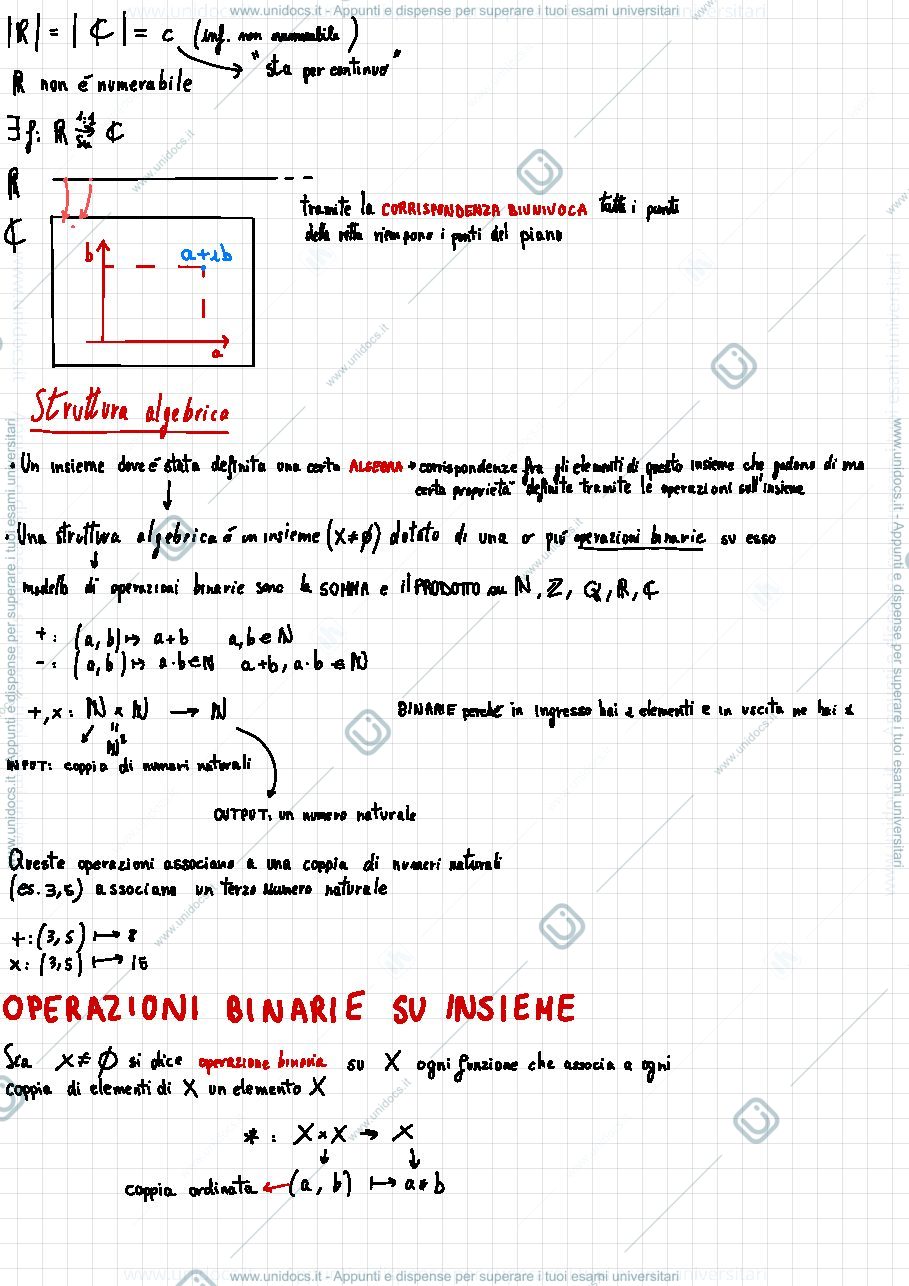 www.unidocs.it - Appunti e dispense per superare i tuoi esami universitari
|ℝ| = |ℂ| = c (inf. non numerabile)
"sta per continuo"
ℝ non é numerabile
∃ f: ℝ 1:1 su ℂ
ℝ
tramite la CORRISPONDENZA BIUNIVOCA tutti i punti
della retta riempono i punti del piano
ℂ
b
a+ib
a
Struttura algebrica
• Un insieme dove é stata definita una certa ALGEBRA → corrispondenze fra gli elementi di questo insieme che godono di una
certa proprietà definite tramite le operazioni sull'insieme
• Una struttura algebrica é un insieme (X≠∅) dotato di una o più operazioni binarie su esso
modello di operazioni binarie sono la SOMMA e il PRODOTTO su ℕ, ℤ, ℚ, ℝ, ℂ
+ : (a,b) ↦ a+b a,b ∈ ℕ
- : (a,b) ↦ a·b ∈ ℕ a+b, a·b ∈ ℕ
+,x : ℕ x ℕ → ℕ
BINARIE perché in ingresso hai 2 elementi e in uscita ne hai 1
ℕ²
INPUT: coppia di numeri naturali
OUTPUT: un numero naturale
Queste operazioni associano a una coppia di numeri naturali
(es. 3,5) associano un terzo numero naturale
+:(3,5) ↦ 8
x:(3,5) ↦ 15
OPERAZIONI BINARIE SU INSIEME
Sia X≠∅ si dice operazione binaria su X ogni funzione che associa a ogni
coppia di elementi di X un elemento X
* : X x X → X
coppia ordinata ← (a, b) ↦ a * b
www.unidocs.it - Appunti e dispense per superare i tuoi esami universitari